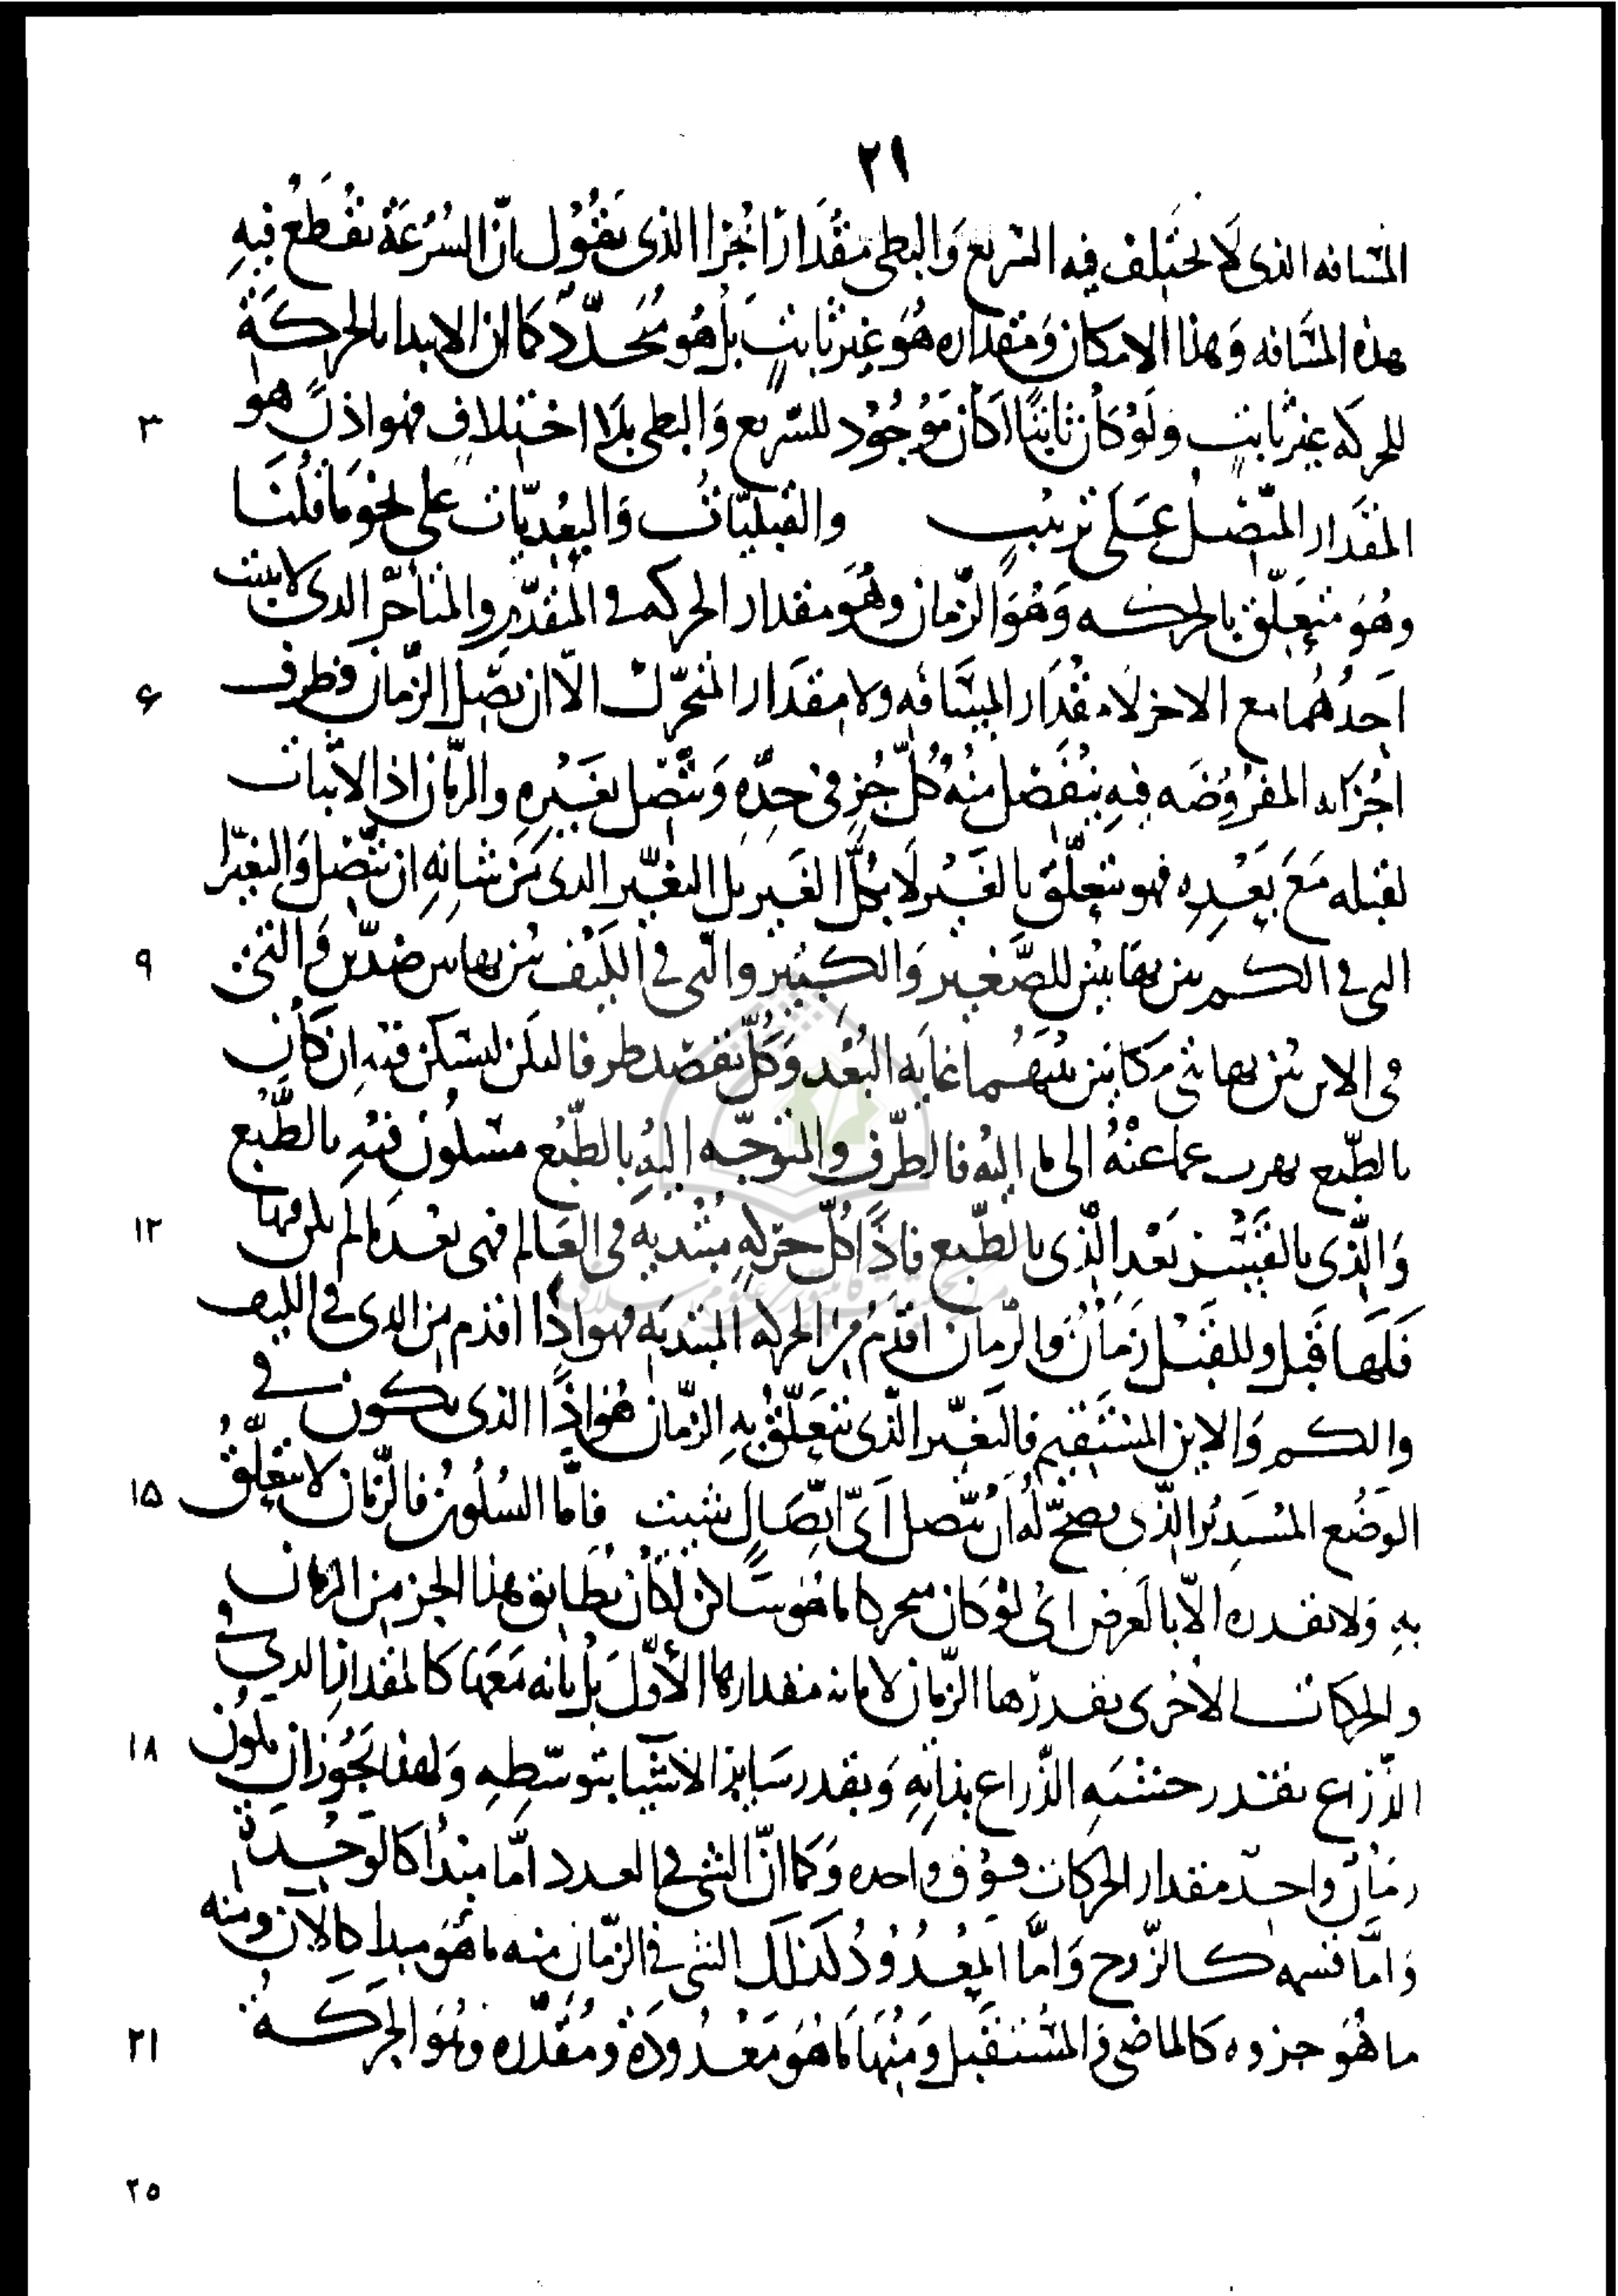 ٢١
المسافه الذى لا يختلف فيه السريع وَالبطى مقدارًا اخرا الذى نقول انّ السُرعَة نقطع فيهِ
هذه المسافه وَهذا الامكان وَمقداره هُوَ غير ثابتٍ بل هُو مُتجدّد كما ان الابدا بالحركَة
للحركه غير ثابتٍ وَلَوْ كان ثابتًا لكان مَوجُوْد للسّريع وَالبطى بلا اختلافٍ فهو اذنْ هو
المقدار المتّصل عَلى ترتيب والقبليّات وَالبعْديّات على نحو ما قلنا
وهُوَ متعَلّق بالحركه وَهُوَ الزّمان وهُوَ مقدار الحركه فى المتقدّم والمتأخّر الذى لا يثبت
اَحدُهُما مع الاخر لا مقدَار المسَافه ولا مقدَار المتحرّك الّا ان يتصل الزّمان فطرف
اجزائه المفروُضَه فيهِ ينفصل منهُ كُلّ جُزٍ فى حدّهِ وَتتّصل بغيْرِهِ والزّمان اذ لا ثبات
لقبله مَعَ بَعْدِهِ فهو يتعلّق بالتغيّر لا بكُلّ التغير بل التغيّر الذى من شانِهِ ان يتّصل وَالتغيّرا
التى فى الكم بين نهايتين للصّغير وَالكبير والتى فى الكيف بين نهايتين ضدّين وَالتى
فى الاين بين نهايتى مكانين بينهُما غايه البُعْد وَكلّ نقصد طرفا ليكن ليسكن فيه ان كان
بالطّبع يهرب عما عنْهُ الى ما اليْه فالطّرف والتوجّه اليْهِ بالطّبع مسكون فيْهِ بالطّبْع
وَالّذى بالقسْر بَعْد الّذى بالطّبع فاذًا كُلّ حركهٍ مُبْتديه فى العَالم فهى بعْد ما لم يكن فيها
فَلَها قبل وللقبْل زمَانٌ والزّمان اقدَم من الحركه المبتديه فهو اذًا اقدم من الذى فى الكيف
والكم وَالاين المستقيم فالتغيّر الّذى يتعَلّق بِهِ الزّمان هُو اذًا الذى يكون فى
الوَضْع المسْتدِير الّذى يصحّ لُه ان يتّصل اىّ اتّصَالٍ شيت فامّا السُكُون فالزّمان لا يتعلّقُ
بِهِ وَلا يقدره الّا بالعرض اى لوْ كان متحركا ما هُو سَاكن لكان يطابق هذا الجز من الزمان
والحركات الاخرى يقدرّها الزّمان لا بانه مقدارها الأوّل بل بانه مَعَها كالمقدار الذى فى
الذّراع يقدر خشبَه الذّراع بذاتِهِ وَيقدر سَاير الاشيا بتوسّطِهِ وَلهذا يَجُوز ان يكون
زمَان واحدٌ مقدار الحركات فوق واحده وَكما انّ الشى فى العدد امّا مبْدأ كالوَحْدة
وَامّا قسمه كالزّوج وَامّا المعْدُوْدُ كذلك الشى فى الزّمان منه ما هُوَ مبدا كالآن ومنه
ما هُوَ جزوه كالماضى والمسْتَقبل وَمنْهَا ما هُوَ مَعْدُودَة ومُقدّره وهُوَ الحَرَكه
٣
۶
٩
١٢
١۵
١٨
٢١
٢۵